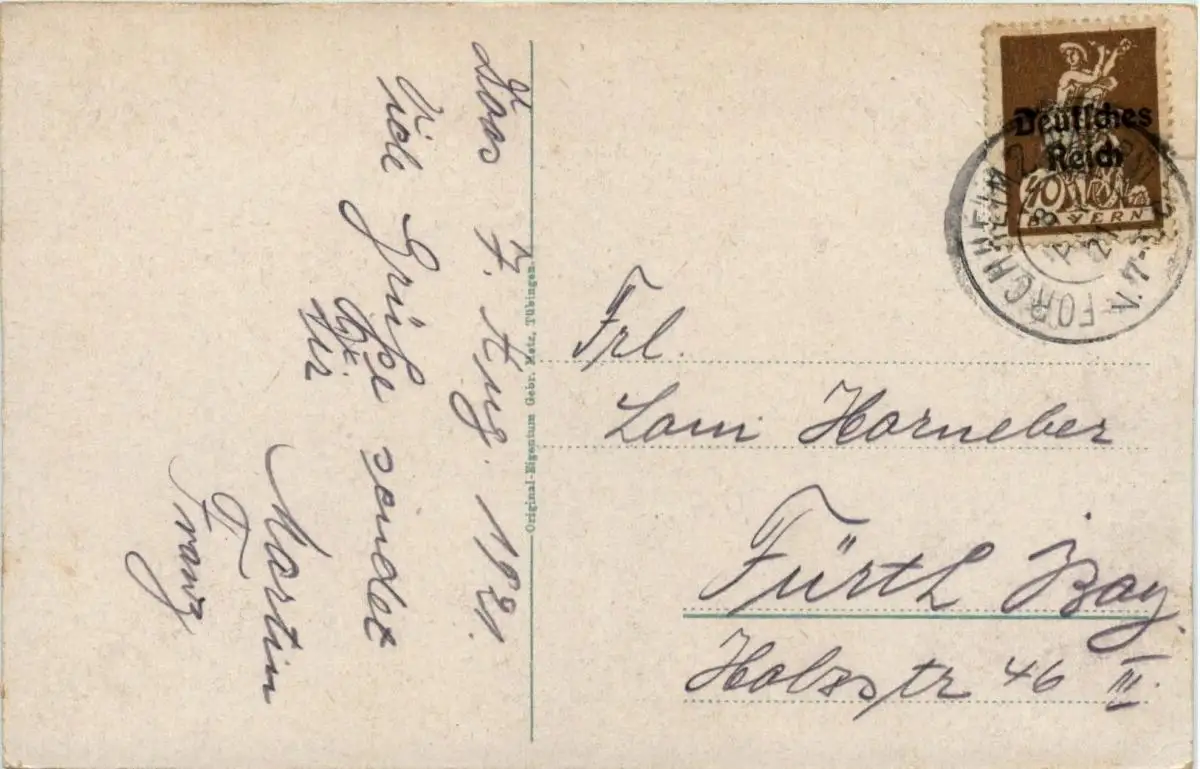 7. Aug. 1921.
Viele Grüße sendet
Dir
Martin
Franz
Original-Eigentum Gebr. Metz, Tübingen.
Deutsches
Reich
40
BAYERN
FORCHHEIM
Frl.
Horneber
Fürth Bay.
Holzstr 46 III.